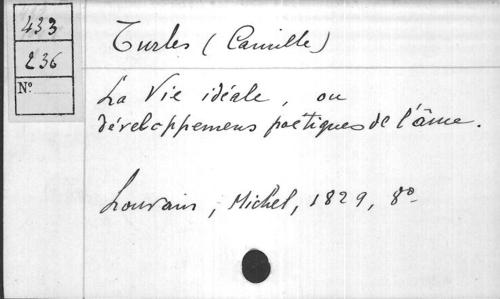 433
236
N.º
Turles (Camille)
La Vie idéale, ou
développemens poëtiques de l'âme.
Louvain, Michel, 1829, 8º